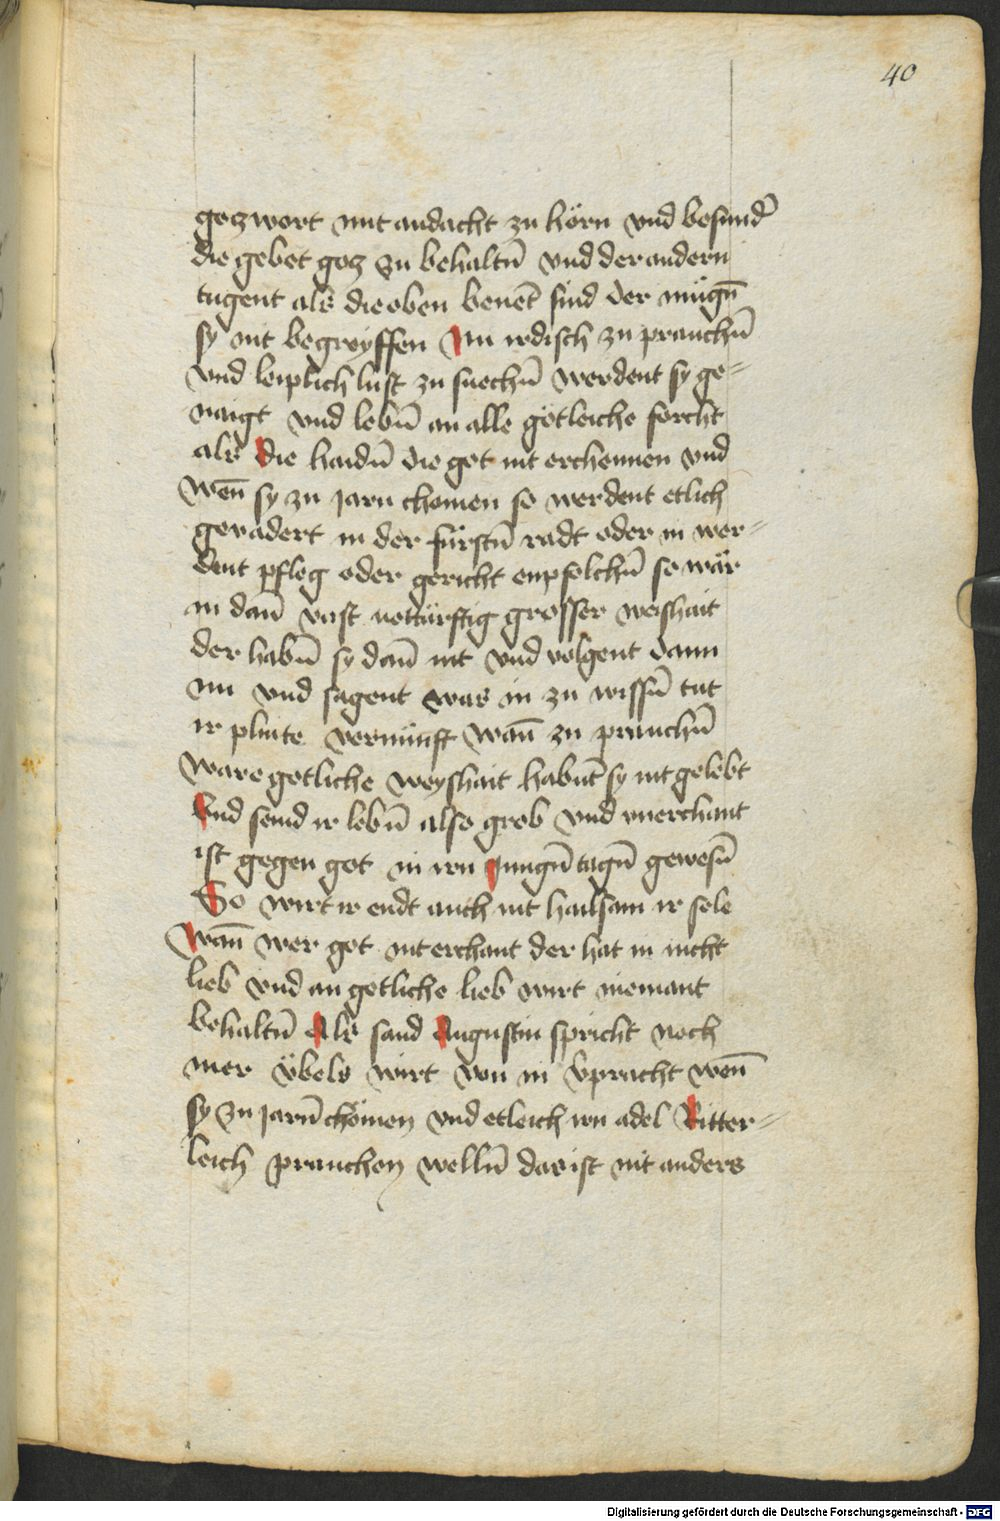 40
gotz wort mit andacht zu hörn vnd besund̄
die gebot gotz zu behaltn̄ vnd der andern
tugent als die oben benēt sind der mügn̄
sy nit begreyffen Nu irdisch zu prauchn̄
vnd leiplich lust zu suechn̄ werdent sy ge-
naigt vnd lebn̄ an alle götleiche forcht
als die haidn̄ die got nit erchennen vnd
Wen̄ sy zu jarn chomen so werdent etlich
gevadert in der fürstn̄ radt oder in wer-
dent pfleg oder gericht enpfolchn̄ so wär
in dan̄ vast notturftig grosser weishait
der habn̄ sy dan̄ nit vnd volgent dann
nu vnd sagent was in zu wissn̄ tut
ir plinte vernünft Wan̄ zu prauchn̄
Ware gotliche weyshait habnt sy nit gelebt
Vnd seind ir lebn̄ also grob vnd vnerchant
ist gegen got in irn Jungn̄ tagn̄ gewesn̄
So wirt ir endt auch nit hailsam ir sele
Wan̄ wer got nit erchant der hat in nicht
lieb vnd an gotliche lieb wirt niemant
behaltn̄ Als sand Augustin spricht noch
mer übels wirt von in vpracht wen̄
sy zu jarn̄ chömen vnd etleich irn adel Ritter-
leich prauchen welln̄ das ist nit anders
Digitalisierung gefördert durch die Deutsche Forschungsgemeinschaft - DFG